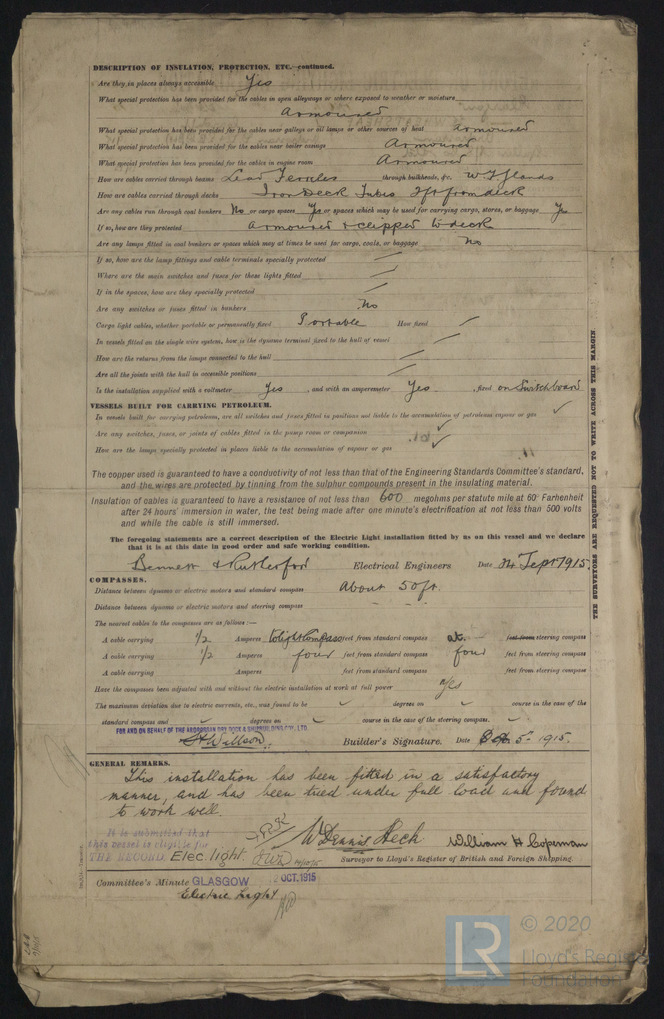 DESCRIPTION OF INSULATION, PROTECTION, ETC.—continued.
Are they in places always accessible Yes
What special protection has been provided for the cables in open alleyways or where exposed to weather or moisture
Armoured
What special protection has been provided for the cables near galleys or oil lamps or other sources of heat armoured
What special protection has been provided for the cables near boiler casings Armoured
What special protection has been provided for the cables in engine room Armoured
How are cables carried through beams Lead Ferrules through bulkheads, &c. W T glands
How are cables carried through decks Iron Deck Tubes 2ft from deck
Are any cables run through coal bunkers No or cargo spaces Yes or spaces which may be used for carrying cargo, stores, or baggage Yes
If so, how are they protected armoured & clipped to deck
Are any lamps fitted in coal bunkers or spaces which may at times be used for cargo, coals, or baggage No
If so, how are the lamp fittings and cable terminals specially protected
Where are the main switches and fuses for these lights fitted
If in the spaces, how are they specially protected
Are any switches or fuses fitted in bunkers No
Cargo light cables, whether portable or permanently fixed Portable How fixed
In vessels fitted on the single wire system, how is the dynamo terminal fixed to the hull of vessel
How are the returns from the lamps connected to the hull
Are all the joints with the hull in accessible positions
Is the installation supplied with a voltmeter Yes , and with an amperemeter Yes , fixed on Switchboard
VESSELS BUILT FOR CARRYING PETROLEUM.
In vessels built for carrying petroleum, are all switches and fuses fitted in positions not liable to the accumulation of petroleum vapour or gas ✓
Are any switches, fuses, or joints of cables fitted in the pump room or companion ✓
How are the lamps specially protected in places liable to the accumulation of vapour or gas ✓
The copper used is guaranteed to have a conductivity of not less than that of the Engineering Standards Committee's standard,
and the wires are protected by tinning from the sulphur compounds present in the insulating material.
Insulation of cables is guaranteed to have a resistance of not less than 600 megohms per statute mile at 60° Farhenheit
after 24 hours' immersion in water, the test being made after one minute's electrification at not less than 500 volts
and while the cable is still immersed.
The foregoing statements are a correct description of the Electric Light installation fitted by us on this vessel and we declare
that it is at this date in good order and safe working condition.
Bennett & Rutherford Electrical Engineers Date Sept 1915.
COMPASSES.
Distance between dynamo or electric motors and standard compass About 50ft.
Distance between dynamo or electric motors and steering compass
The nearest cables to the compasses are as follows:—
A cable carrying 1/2 Amperes to light Compass feet from standard compass at feet from steering compass
A cable carrying 1/2 Amperes four feet from standard compass four feet from steering compass
A cable carrying Amperes feet from standard compass feet from steering compass
Have the compasses been adjusted with and without the electric installation at work at full power Yes
The maximum deviation due to electric currents, etc., was found to be ✓ degrees on ✓ course in the case of the
standard compass and ✓ degrees on ✓ course in the case of the steering compass. ✓
FOR AND ON BEHALF OF THE ARDROSSAN DRY DOCK & SHIPBUILDING COY., LTD.
Willson Builder's Signature. Date 5 1915.
GENERAL REMARKS.
This installation has been fitted in a satisfactory
manner, and has been tried under full load and found
to work well.
It is submitted that
this vessel is eligible for
THE RECORD. Elec. light.
W Dennis Heck William H Copeman
Surveyor to Lloyd's Register of British and Foreign Shipping.
Committee's Minute GLASGOW OCT. 1915
Electric Light
THE SURVEYORS ARE REQUESTED NOT TO WRITE ACROSS THIS MARGIN.
LR
© 2020
Lloyd's Register
Foundation